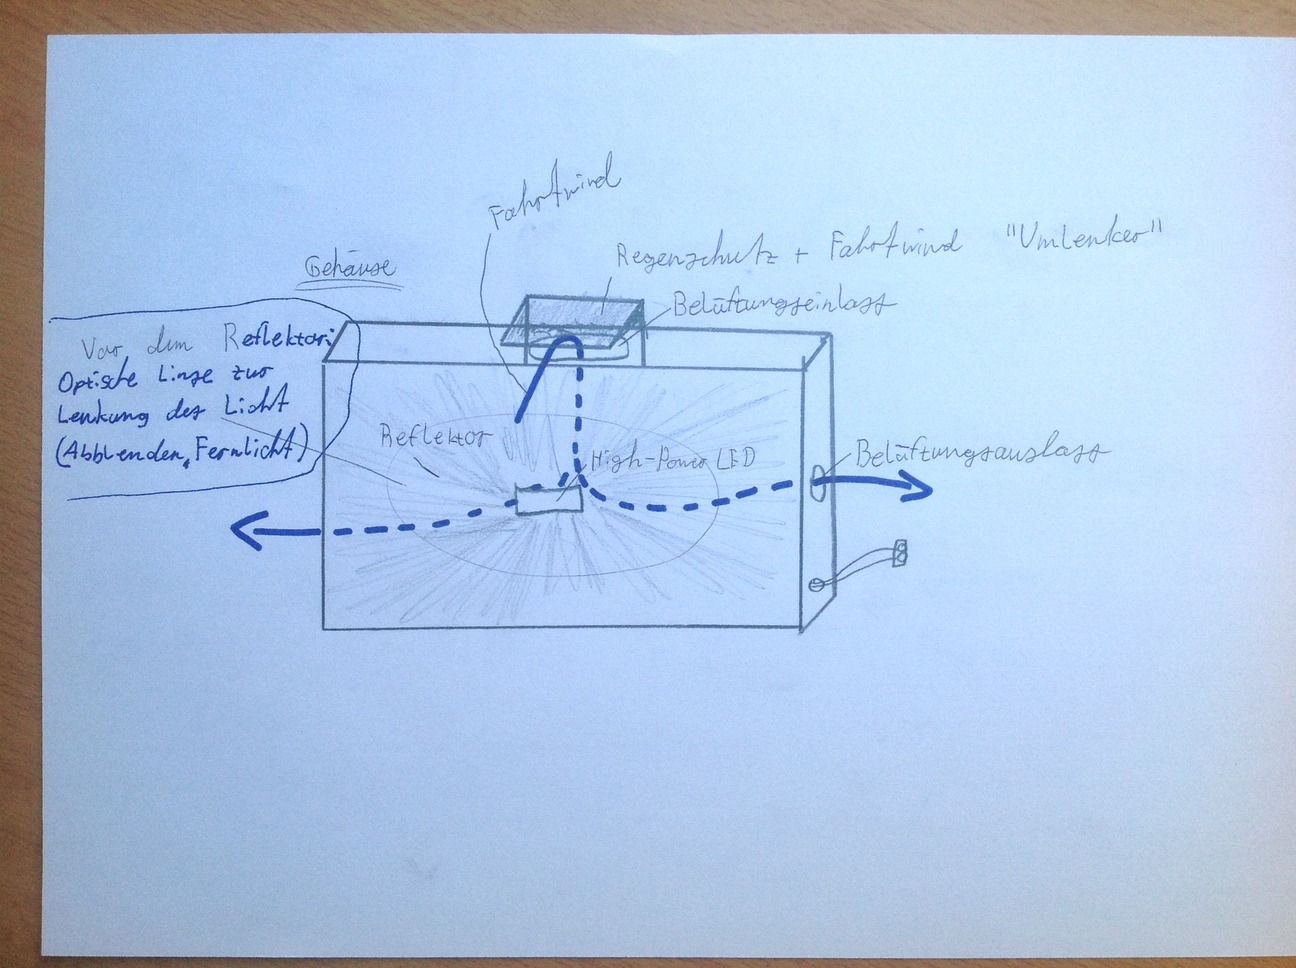 Fahrtwind
Regenschutz + Fahrtwind "Umlenker"
Gehäuse
Belüftungseinlass
Vor dem Reflektor:
Optische Linse zur
Lenkung des Licht
(Abblenden, Fernlicht)
Reflektor
High-Power LED
Belüftungsauslass